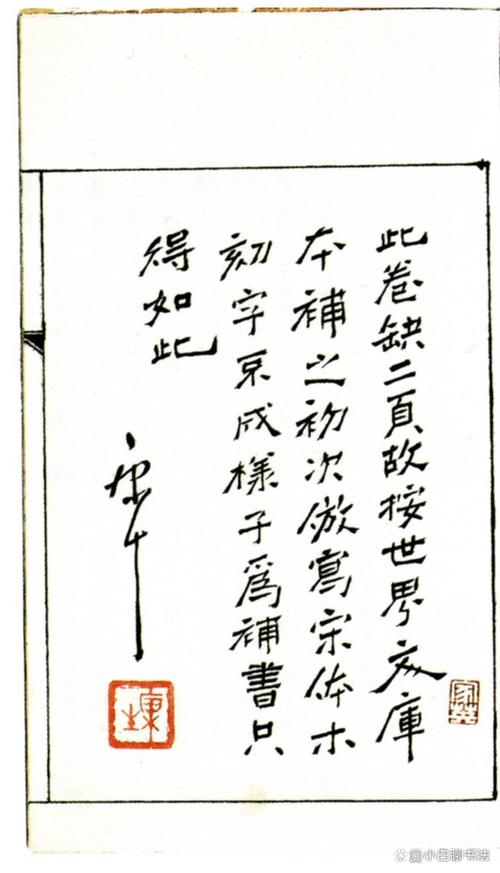 此卷缺二頁故按世界文庫
本補之初次倣寫宋体木
刻字不成樣子爲補書只
得如此
康生
康生
@小白聊书法